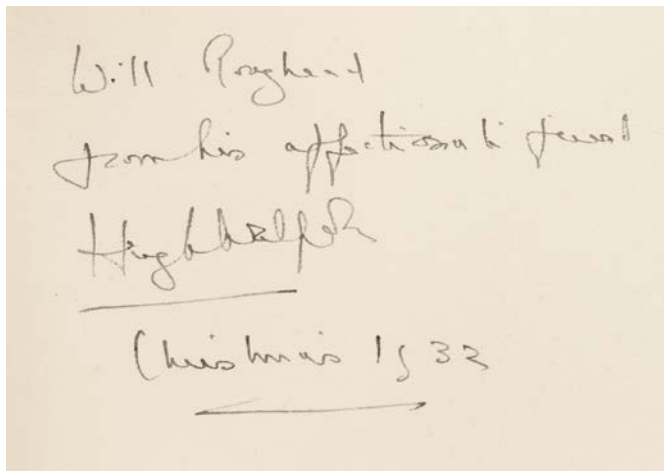 Will Roughead
from his affectionate friend
Hugh Walpole
Christmas 1932